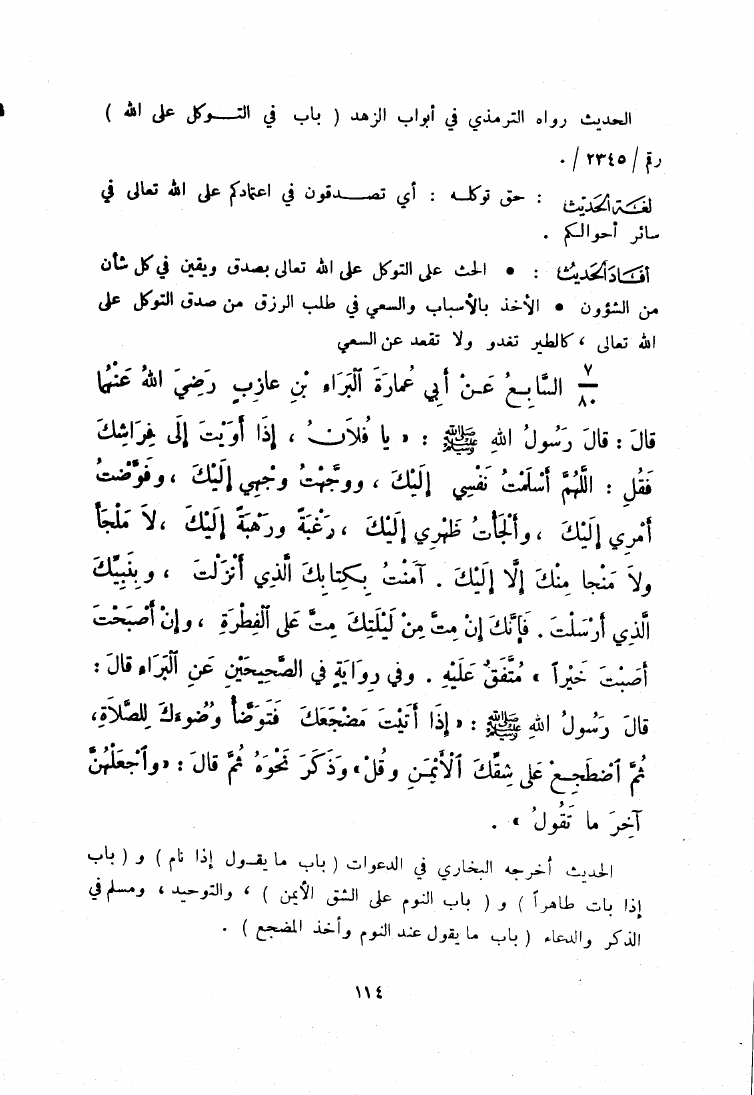 الحديث رواه الترمذي في أبواب الزهد ( باب في التـــوكل على الله )
رقم / ٢٣٤٥ / .
لغة الحديث : حق توكله : أي تصـــدقون في اعتمادكم على الله تعالى في
سائر أحوالكم .
أفاد الحديث : • الحث على التوكل على الله تعالى بصدق ويقين في كل شأن
من الشؤون • الأخذ بالأسباب والسعي في طلب الرزق من صدق التوكل على
الله تعالى ، كالطير تغدو ولا تقعد عن السعي
٧/٨٠ السَّابِعُ عَنْ أبي عُمارَةَ ٱلْبَرَاءِ بْنِ عازِبٍ رَضِيَ اللهُ عَنْهُما
قالَ : قالَ رَسُولُ اللهِ ﷺ : « يا فُلَانُ ، إذَا أَوَيْتَ إلَى فِرَاشِكَ
فَقُلِ : اللَّهُمَّ أَسْلَمْتُ نَفْسِي إلَيْكَ ، ووَجَّهْتُ وَجْهِي إلَيْكَ ، وفَوَّضْتُ
أَمْرِي إلَيْكَ ، وأَلْجَأْتُ ظَهْرِي إلَيْكَ ، رَغْبَةً ورَهْبَةً إلَيْكَ ، لاَ مَلْجَأَ
ولاَ مَنْجا مِنْكَ إلَّا إلَيْكَ . آمَنْتُ بِكِتابِكَ الَّذِي أَنْزَلْتَ ، وبِنَبِيِّكَ
الَّذِي أَرْسَلْتَ . فَإنَّكَ إنْ مِتَّ مِنْ لَيْلَتِكَ مِتَّ عَلَى الْفِطْرَةِ ، وإنْ أَصْبَحْتَ
أَصَبْتَ خَيْراً » مُتَّفَقٌ عَلَيْهِ . وفي رِوايَةٍ في الصَّحِيحَيْنِ عَنِ ٱلْبَرَاءِ قالَ :
قالَ رَسُولُ اللهِ ﷺ : « إذَا أَتَيْتَ مَضْجَعَكَ فَتَوَضَّأْ وُضُوءَكَ لِلصَّلَاةِ ،
ثُمَّ ٱضْطَجِعْ عَلَى شِقِّكَ ٱلْأَيْمَنِ وقُلْ » وَذَكَرَ نَحْوَهُ ثُمَّ قالَ : « وٱجْعَلْهُنَّ
آخِرَ ما تَقُولُ » .
الحديث أخرجه البخاري في الدعوات ( باب ما يقـول إذا نام ) و ( باب
إذا بات طاهراً ) و ( باب النوم على الشق الأيمن ) ، والتوحيد ، ومسلم في
الذكر والدعاء ( باب ما يقول عند النوم وأخذ المضجع ) .
١١٤